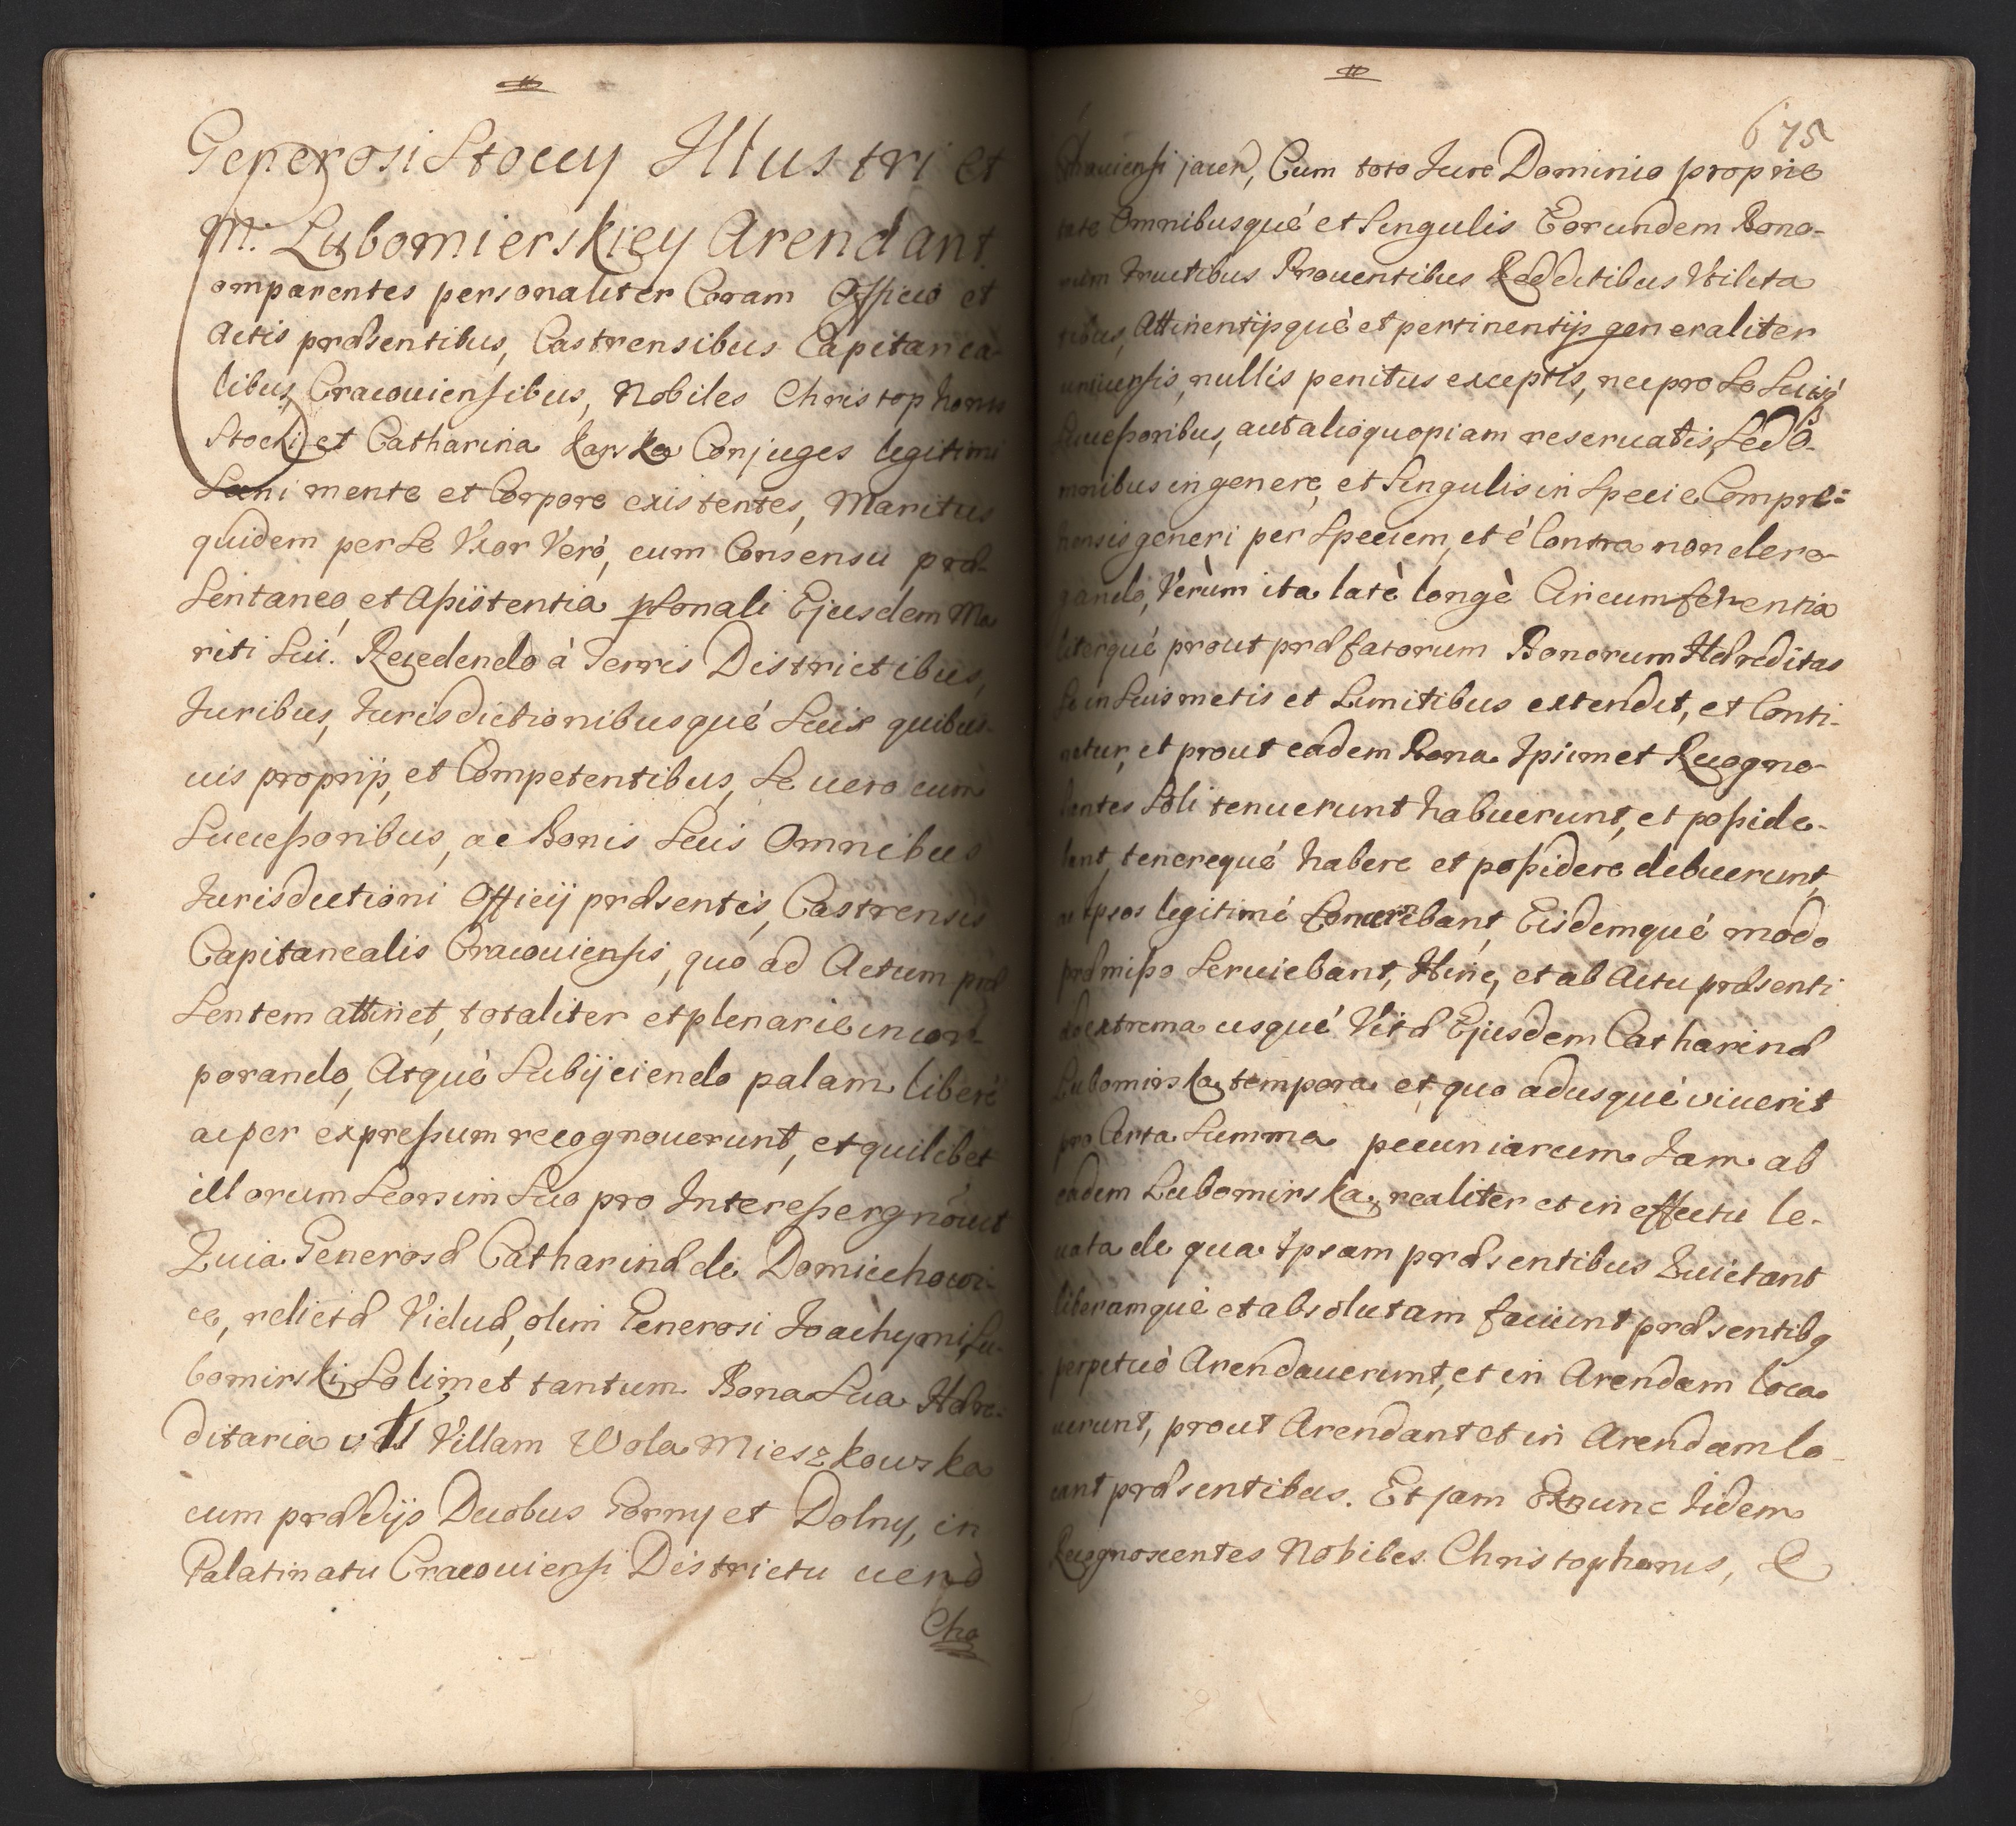 Generosi Stoccy Illustri et
M. Lubomierskiey Arendant
omparentes personaliter Coram Officio et
Actis præsentibus, Castrensibus Capitanea-
libus, Cracouiensibus, Nobiles Christophorus
Stocki et Catharina Karska Conjuges legitimi
Sani mente et Corpore existentes, Maritus
quidem per Se Vxor Verò, cum Consensu præ-
Sentaneo, et Assistentia psonali Ejusdem Ma
riti Sui. Recedendo à Terris Districtibus,
Juribus, Jurisdictionibusqué Suis quibus-
uis proprijs, et Competentibus, Se uero cum
Successoribus, ac Bonis Suis Omnibus
Jurisdictioni Officij præsentis, Castrensis
Capitanealis Cracouiensis, quò ad Actum præ
Sentem attinet, totaliter et plenarie incor-
porando, Atquè Subijciendo palam liberè
ac per expressum recognouerunt, et quilibet
illorum Seorsim Suo pro Interesse rgnouit
Quia Generosæ Catharinæ de Domiechowi-
ce, relictæ Viduæ, olim Generosi Joachymi Lu-
bomirski, Solimet tantum Bona Sua Hære-
ditaria utt Villam Wola Mieszkowska
cum prædijs Duobus Gorny et Dolny, in
Palatinatu Cracouiensi Districtu uero
Cho
675
jacen, Cum toto Jure Dominio proprie
tate Omnibusqué et Singulis Eorundem Bono-
rum Fructibus Prouentibus Redditibus Vtilita
tibus, Attinentijsquè et pertinentijs generaliter
uniuersis, nullis penitus exceptis, nec pro Se Suisq
Successoribus, aut alio quopiam reseruatis, Sed O-
mnibus in genere, et Singulis in Specie Compre-
hensis generi per Speciem, et è Contra non dero-
gando, Verùm ita latè longè Circumferentia
literqué prout præfatorum Bonorum Hæreditas
Se in Suis metis et Limitibus extendit, et Conti-
netur, et prout eadem Bona Ipsimet Recogno-
Soli tenuerunt habuerunt, et posside-
bant, tenerequé habere et possidere debuerunt,
ac Ipsos legitimé Concernebant, Eisdemqué modo
præmisso Seruiebant, Hinc, et ab Actu præsenti
ad extrema usqué Vitæ Ejusdem Catharinæ
Lubomirska tempora et quo adusqué vixerit
pro Certa Summa pecuniarum Jam ab
eadem Lubomirska, realiter et in effectu le-
uata de qua Ipsam præsentibus Quietant
liberamquè et absolutam faciunt præsentibq
perpetuò Arendauerunt, et in Arendam loca
uerunt, prout Arendant et in Arendam lo-
cant præsentibus. Et jam Exnunc Iidem
Recognoscentes Nobiles Christophorus, &